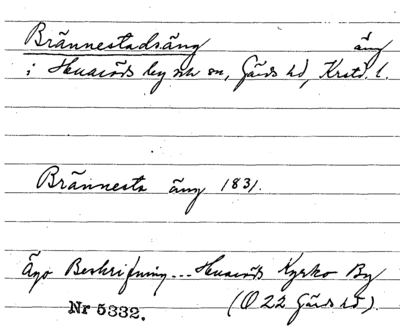 Brännestadsäng äng
i Huaröds by och sn, Gärds hd, Krstd. l.
Brännesta äng 1831.
Ägo Beskrifning... Huaröds Kyrko By
(O 22 Gärds hd).
Nr 5332.